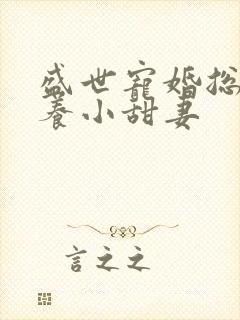 盛世寵婚総
養小甜妻
言之之